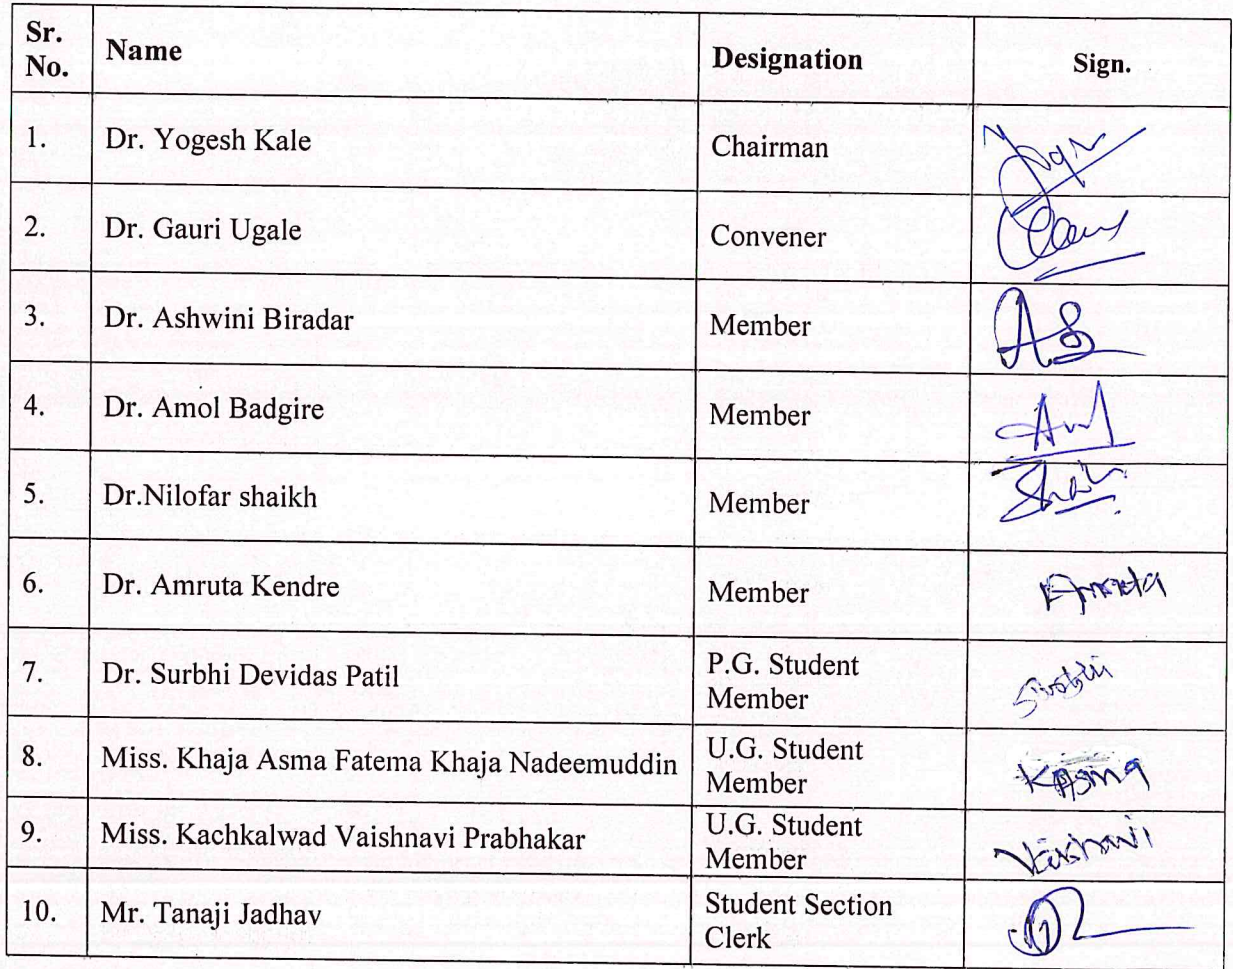 Sr. No. Name Designation Sign.
1. Dr. Yogesh Kale Chairman
2. Dr. Gauri Ugale Convener
3. Dr. Ashwini Biradar Member
4. Dr. Amol Badgire Member
5. Dr.Nilofar shaikh Member
6. Dr. Amruta Kendre Member Amruta
7. Dr. Surbhi Devidas Patil P.G. Student
Member
8. Miss. Khaja Asma Fatema Khaja Nadeemuddin U.G. Student
Member KAsma
9. Miss. Kachkalwad Vaishnavi Prabhakar U.G. Student
Member
10. Mr. Tanaji Jadhav Student Section
Clerk